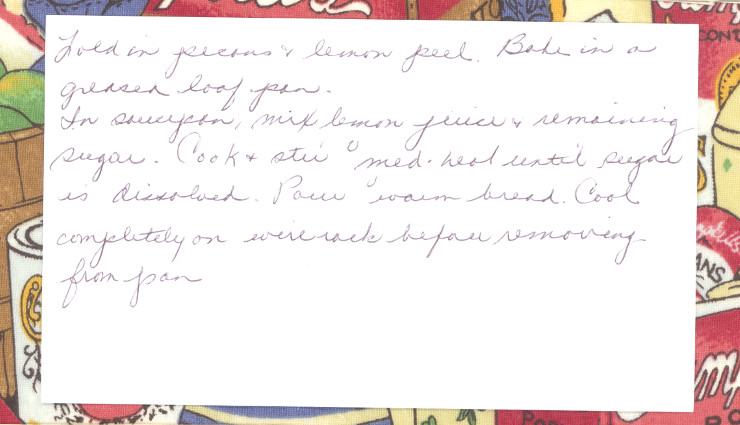 Fold in pecans & lemon peel. Bake in a
greased loaf pan.
In saucepan, mix lemon juice & remaining
sugar. Cook & stir " med. heat until sugar
is dissolved. Pour " warm bread. Cool
completely on wire rack before removing
from pan
CONT
ANS